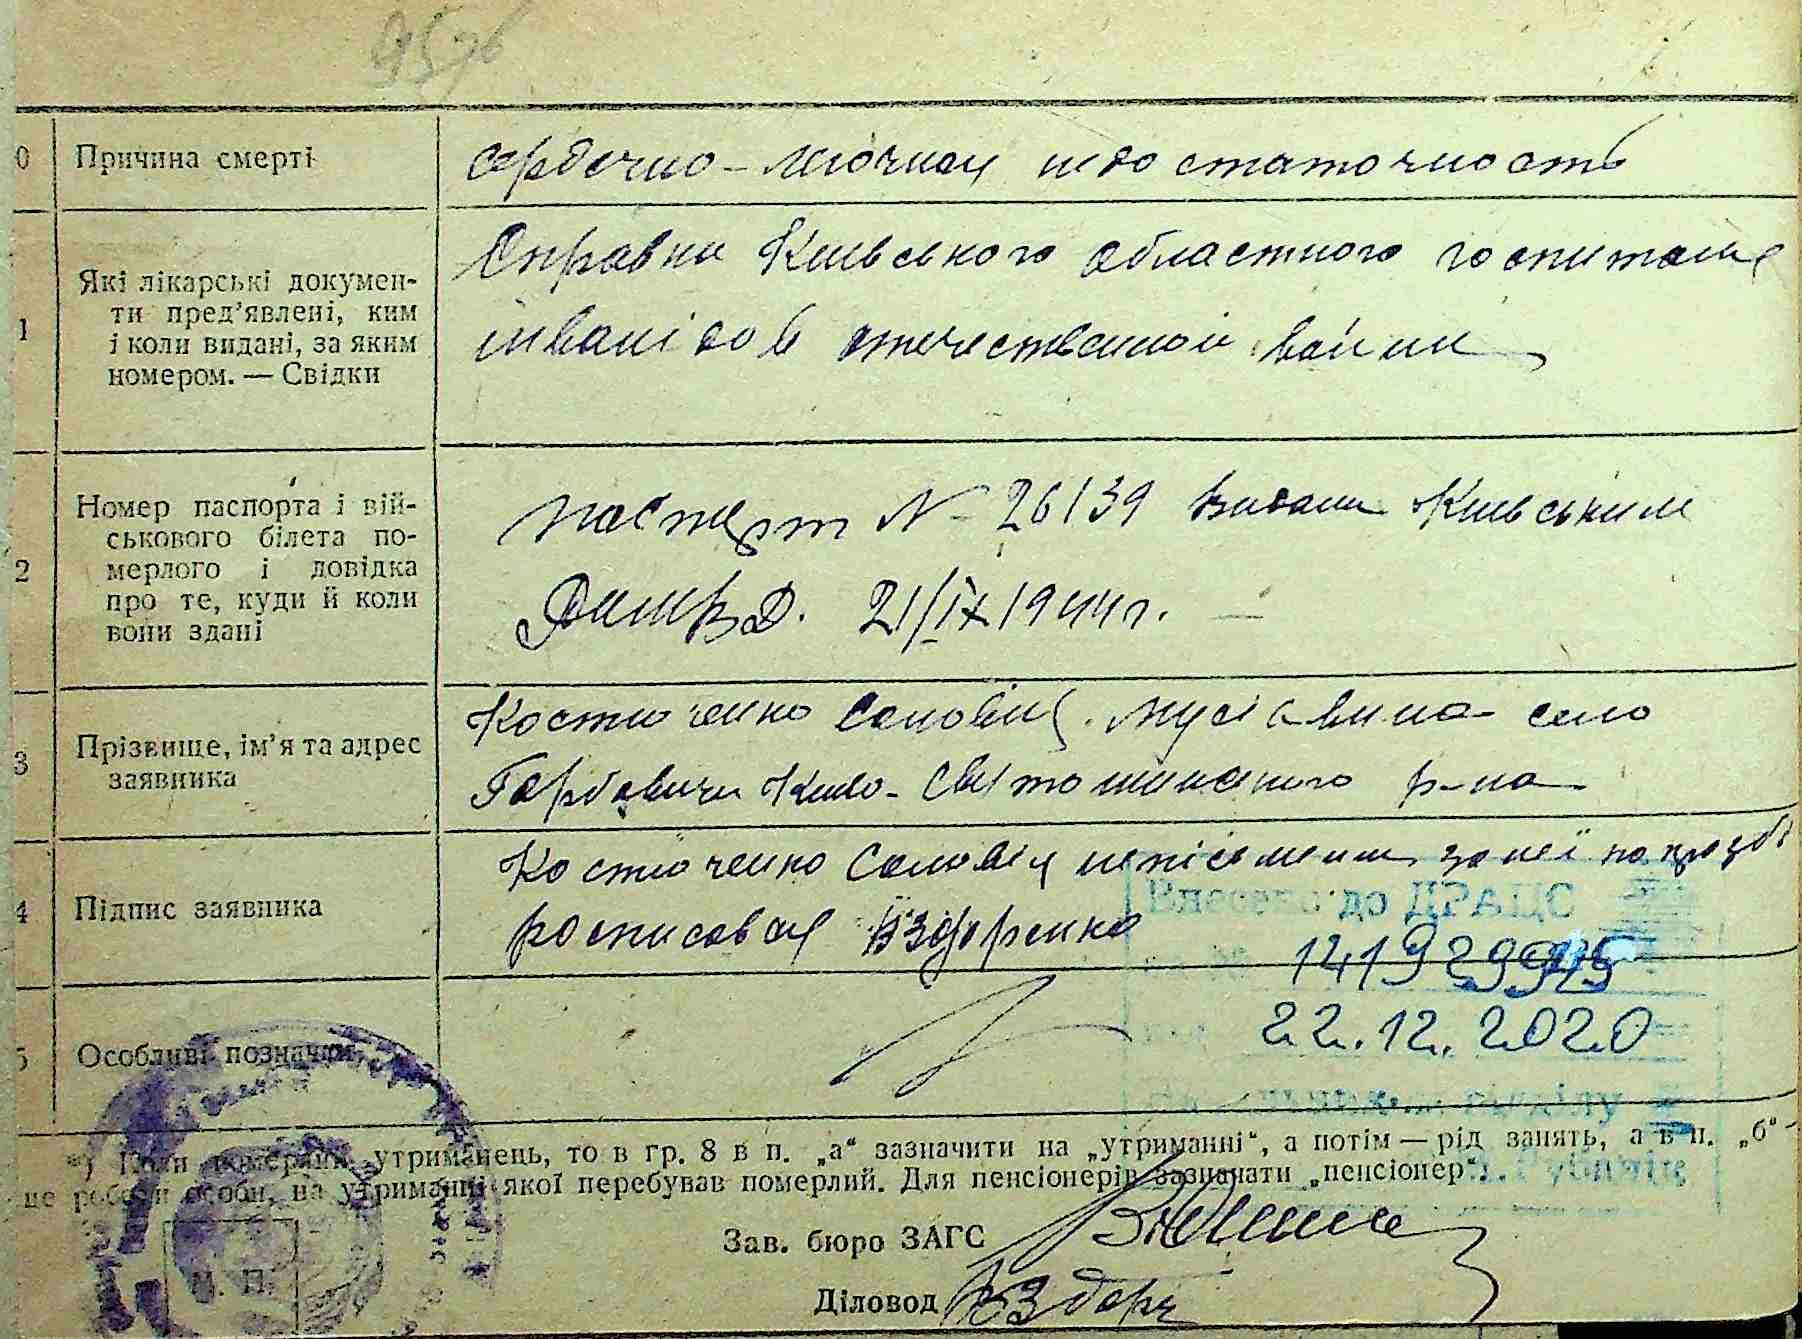 0 Причина смерті
сердечно-легочная недостаточность
1 Які лікарські докумен-
ти пред'явлені, ким
і коли видані, за яким
номером. — Свідки
Справка Київського областного госпиталя
інвалідов отечественной войни
2 Номер паспорта і вій-
ськового білета по-
мерлого і довідка
про те, куди й коли
вони здані
паспорт N 26139 видан Київським
21/IX 1944 г.
3 Прізвище, ім'я та адрес
заявника
Костюченко Соловія Мусіївна село
Києво-Святошинського р-на
4 Підпис заявника
Костюченко Соловія неписьменна за неї по
росписався Вздоренко
Внесено до ДРАЦС
22.12.2020
5 Особливі позначки
*) Коли померлий утриманець, то в гр. 8 в п. „а“ зазначити на „утриманні“, а потім — рід занять, а в п. „б“ -
це роботи особи, на утриманні якої перебував померлий. Для пенсіонерів зазначати „пенсіонер“.
Зав. бюро ЗАГС
М. П.
Діловод